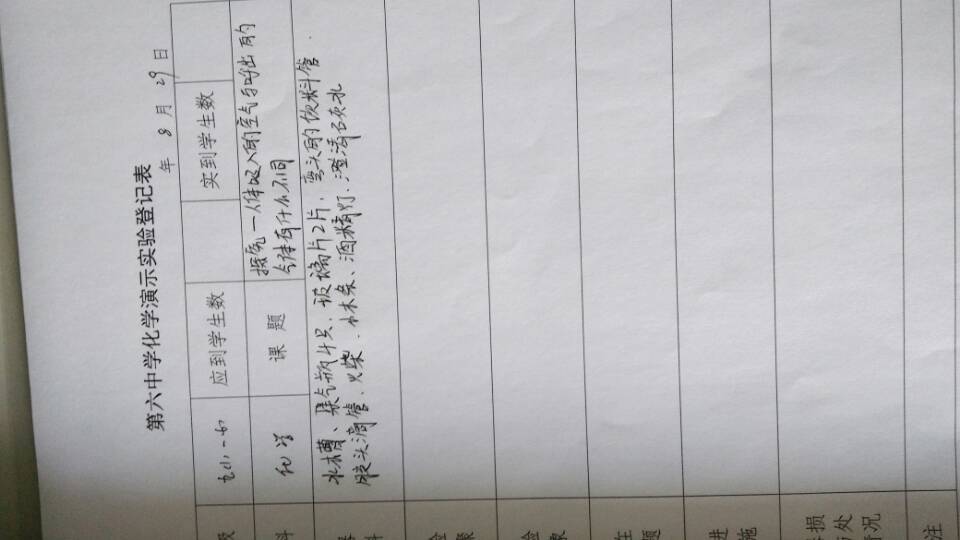 第六中学化学演示实验登记表
年 8 月 29 日
级 应到学生数 实到学生数
科 化学 课题 探究—人体吸入的空气与呼出的
气体有什么不同
水槽、集气瓶4只、玻璃片2片、弯头的饮料管、
胶头滴管、火柴、小木条、酒精灯、澄清石灰水
验
验
象
生
题
进
施
损
处
情况
注